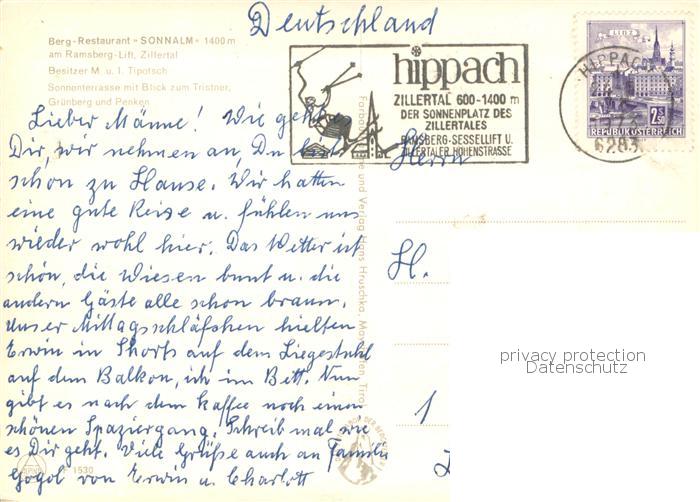 Deutschland
Berg-Restaurant »SONNALM« 1400 m
am Ramsberg-Lift, Zillertal
Besitzer M. u. I. Tipotsch
Sonnenterrasse mit Blick zum Tristner,
Grünberg und Penken
hippach
ZILLERTAL 600-1400 m
DER SONNENPLATZ DES
ZILLERTALES
RAMSBERG-SESSELLIFT U.
ZILLERTALER HÖHENSTRASSE
LINZ
2.50
REPUBLIK ÖSTERREICH
HIPPACH
6283
Lieber Männe! Wie geht
Dir, wir nehmen an, Du bist
schon zu Hause. Wir hatten
eine gute Reise u. fühlen uns
wieder wohl hier. Das Wetter ist
schön, die Wiesen bunt u. die
andern Gäste alle schon braun.
Unser Mittagsschläfchen hielten
Erwin in Shorts auf dem Liegestuhl
auf dem Balkon, ich im Bett. Nun
gibt es nach dem Kaffee noch einen
schönen Spaziergang. Schreib mal wie
es Dir geht. Viele Grüße auch an Familie
Gogol von Erwin u. Charlott
1530
und Verlag Hans Hruschka, Tirol
Herrn
H.
1
privacy protection
Datenschutz